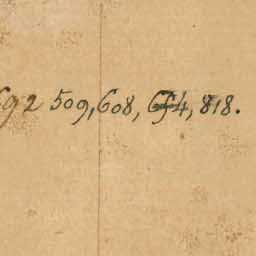 692 509, 608, 654, 818.